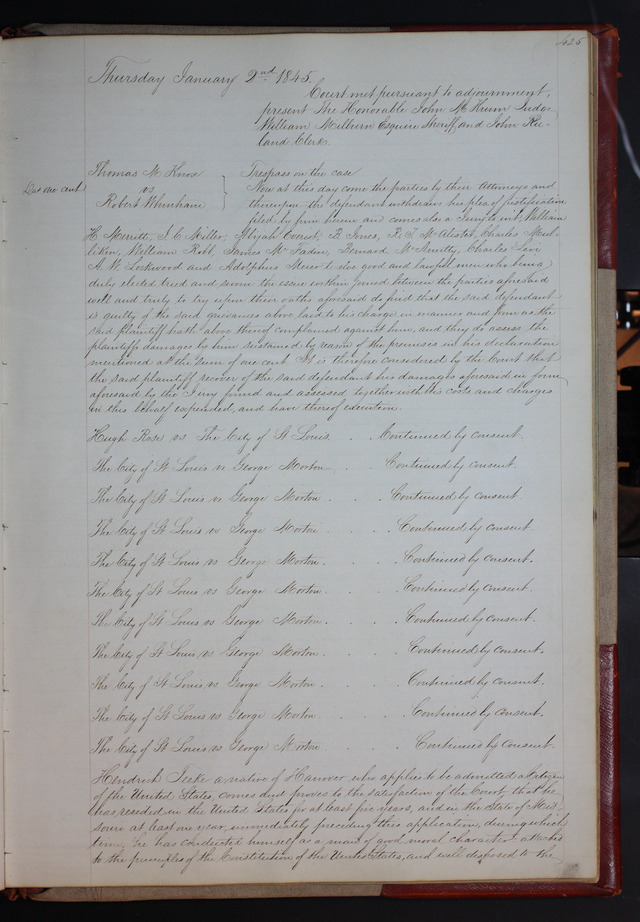 425
Thursday January 2nd 1845
Court met pursuant to adjournment,
present The Honorable John M Krum Judge
William Milburn Esquire Sheriff, and John Ru-
land Clerk.
Thomas M. Knox
vs
Robert Whinham
Trespass on the case
Now at this day come the parties by their Attorneys and
thereupon the defendant withdraws his plea of justification
filed by him herein and comes also a Jury to wit, William
H. Merritt, J. C. Miller, Abijah Everet, B. Jones, B. F. McAlister, Charles Mul-
liken, William Robb, James McFaden, Bernard McAnulty, Charles Levi
A. W. Lockwood and Adolphus Meier twelve good and lawful men who being
duly elected tried and sworn the issue within joined between the parties aforesaid
well and truly to try upon their oaths aforesaid do find that the said defendant
is guilty of the said grievances above laid to his charge in manner and form as the
said plaintiff hath above thereof complained against him, and they do assess the
plaintiffs damages by him sustained by reason of the premises in his declaration
mentioned at the sum of one cent It is therefore considered by the Court that
the said plaintiff recover of the said defendant his damages aforesaid in form
aforesaid by the Jury found and assessed together with his costs and charges
in this behalf expended, and have thereof execution.
Hugh Rose vs The City of St Louis . . Continued by consent.
The City of St Louis vs George Morton . . Continued by consent.
The City of St Louis vs George Morton . . . Continued by consent.
The City of St Louis vs George Morton . . . Continued by consent
The City of St Louis vs George Morton. . . . Continued by consent.
The City of St Louis vs George Morton. . . . Continued by consent.
The City of St Louis vs George Morton. . . . Continued by consent.
The City of St Louis vs George Morton. . . . Continued by consent.
The City of St Louis vs George Morton. . . . Continued by consent.
The City of St Louis vs George Morton. . . . Continued by consent.
The City of St Louis vs George Morton. . . . Continued by consent.
Hendrick a native of Hanover who applies to be admitted a Citizen
of the United States, comes and proves to the satisfaction of the Court, that he
has resided in the United States for at least five years, and in the State of Mis-
souri at least one year, immediately preceding this application, during which
time, he has conducted himself as a man of good moral character attached
to the principles of the Constitution of the United States, and well disposed to the